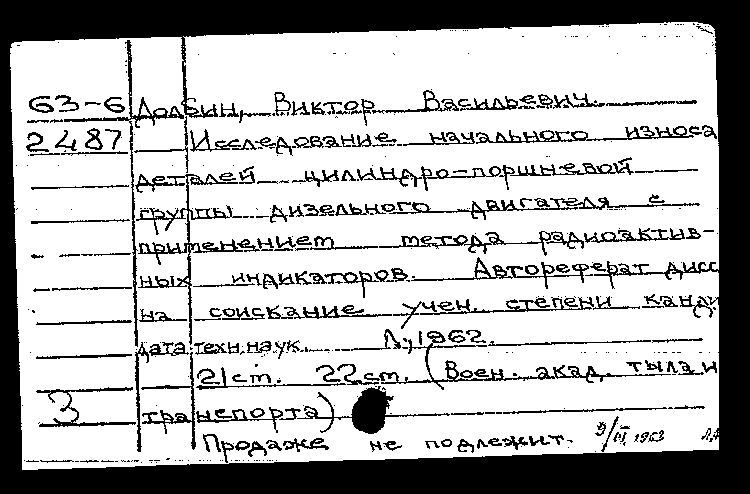 63-6 Долбин, Виктор Васильевич.
2487 Исследование начального износа
деталей цилиндро-поршневой
группы дизельного двигателя с
применением метода радиоактив-
ных индикаторов. Автореферат дисс
на соискание учен. степени канди
дата техн. наук. Л., 1962.
21 ст. 22 ст. (Воен. акад. тыла и
3 транспорта)
Продаже не подлежит. 9/IV 1963